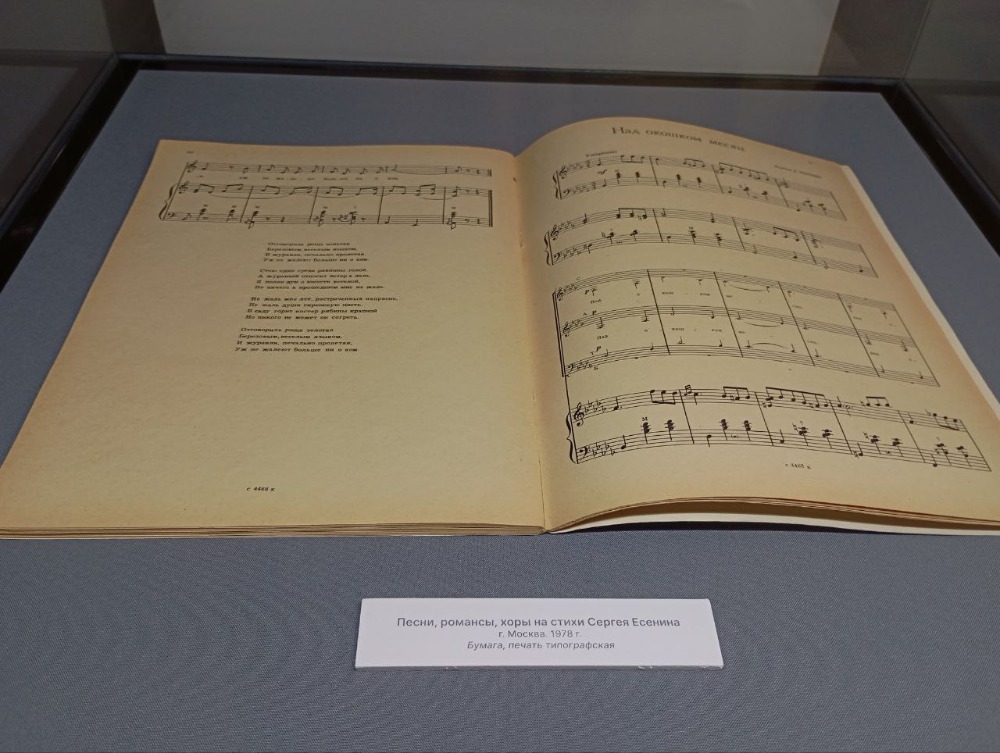 Отговорила роща золотая
Березовым, веселым языком,
И журавли, печально пролетая,
Уж не жалеют больше ни о ком.
Стою один среди равнины голой,
А журавлей относит ветер в даль,
Я полон дум о юности веселой,
Но ничего в прошедшем мне не жаль.
Не жаль мне лет, растраченных напрасно,
Не жаль души сиреневую цветь.
В саду горит костер рябины красной,
Но никого не может он согреть.
Отговорила роща золотая
Березовым, веселым языком,
И журавли, печально пролетая,
Уж не жалеют больше ни о ком
с 4468 к
Над окошком месяц
Под
Под
с 4468 к
Песни, романсы, хоры на стихи Сергея Есенина
г. Москва. 1978 г.
Бумага, печать типографская